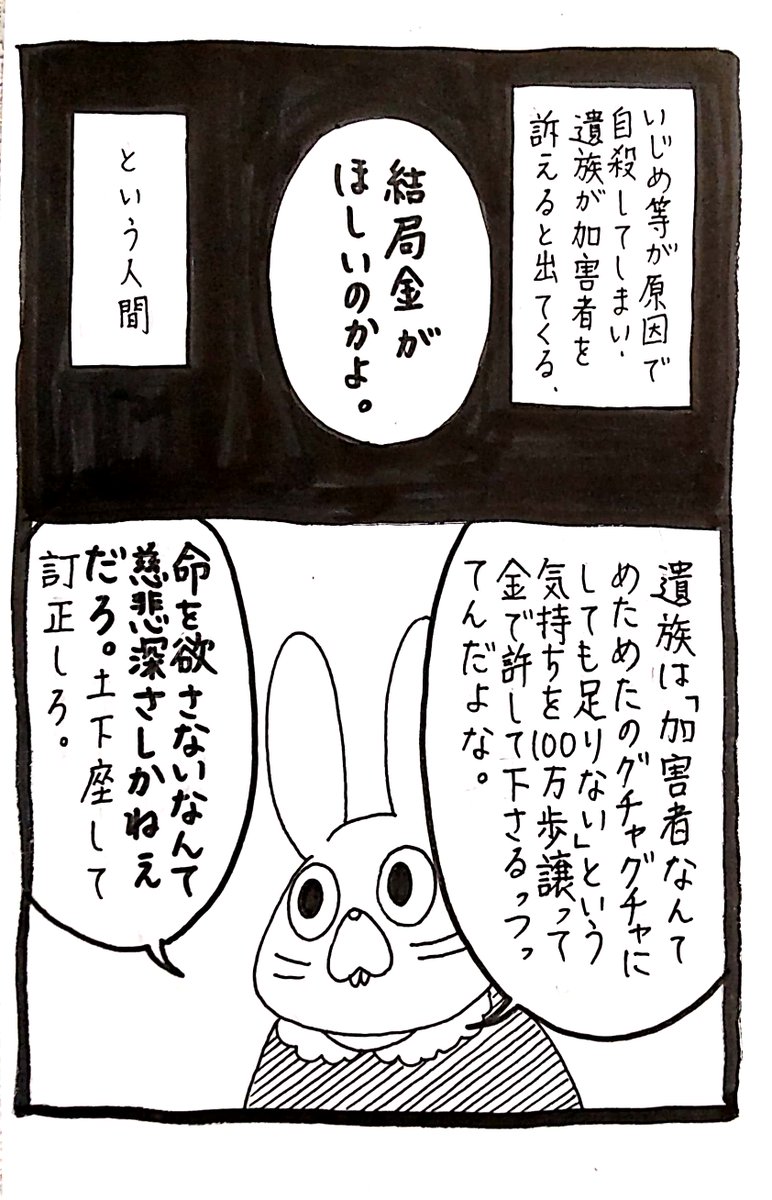 いじめ等が原因で
自殺してしまい、
遺族が加害者を
訴えると出てくる、
結局金が
ほしいのかよ。
という人間
遺族は「加害者なんて
めためたのグチャグチャに
しても足りない」という
気持ちを100万歩譲って
金で許して下さるっつっ
てんだよな。
命を欲さないなんて
慈悲深さしかねぇ
だろ。土下座して
訂正しろ。